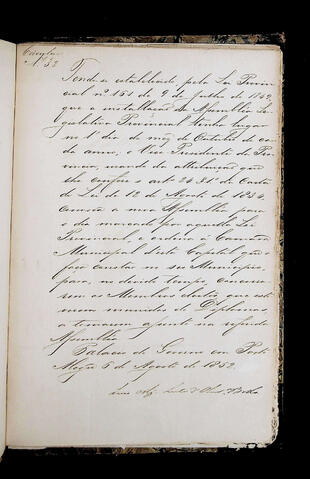 Circular
N. 32
Tendo sido estabelecido pela Lei Provin-
cial nº 151 de 9 de Julho de 1849,
que a installação da Assembléa Le-
gislativa Provincial tenha lugar
no 1º dia do mez de Outubro de ca-
da anno, o Vice Presidente da Pro-
vincia, usando da attribuição que
lhe confere o artº 24 § 1º da Carta
de Lei de 12 de Agosto de 1834,
convoca a nova Assembléa para
o dia marcado por aquella Lei
Provincial, e ordena a Camara
Municipal desta Capital que
faça constar no seu Municipio,
para, no devido tempo, concorre-
rem os Membros eleitos que esti-
verem munidos de Diplomas
a tomarem assento na referida
Assembléa
Palacio do Governo em Porto
Alegre 5 de Agosto de 1852.
Luis